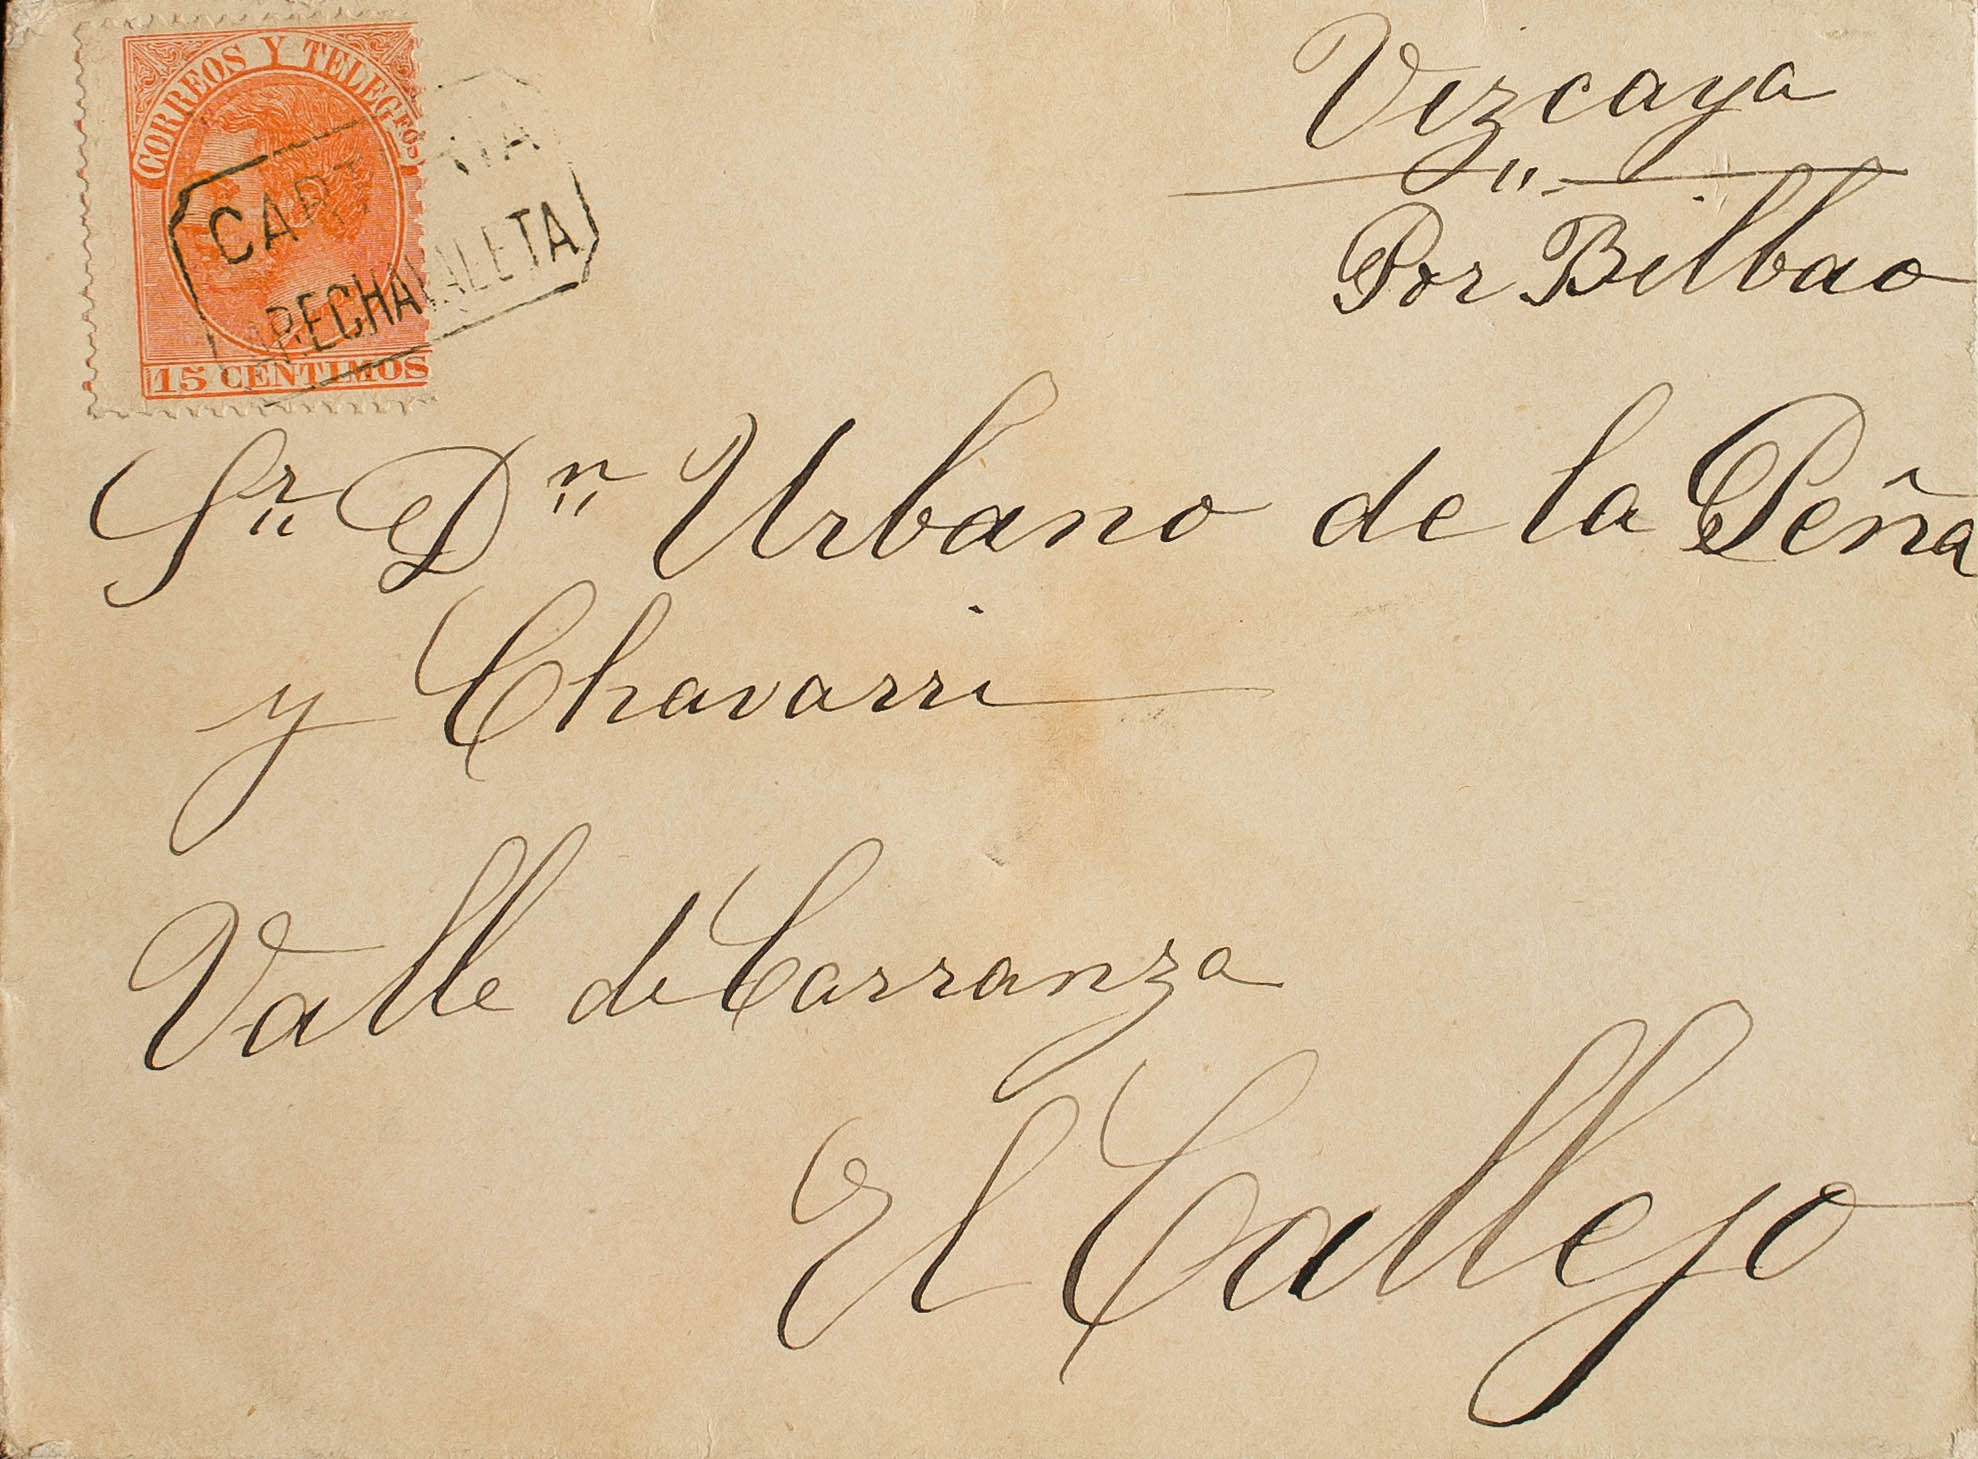 CORREOS Y TELEGFOS
CARTERIA
ARECHAVALETA
15 CENTIMOS
Vizcaya
Por Bilbao
Sr Dn Urbano de la Peña
y Chavarri
Valle de Carranza
El Callejo